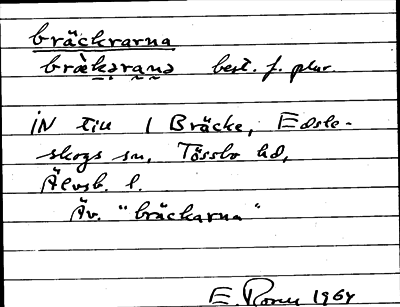 bräckrarna
bræ̀kərana best. f. plur.
IN till 1 Bräcke, Edsle-
skogs sn, Tössbo hd,
Älvsb. l.
Äv. "bräckarna"
E. 1964